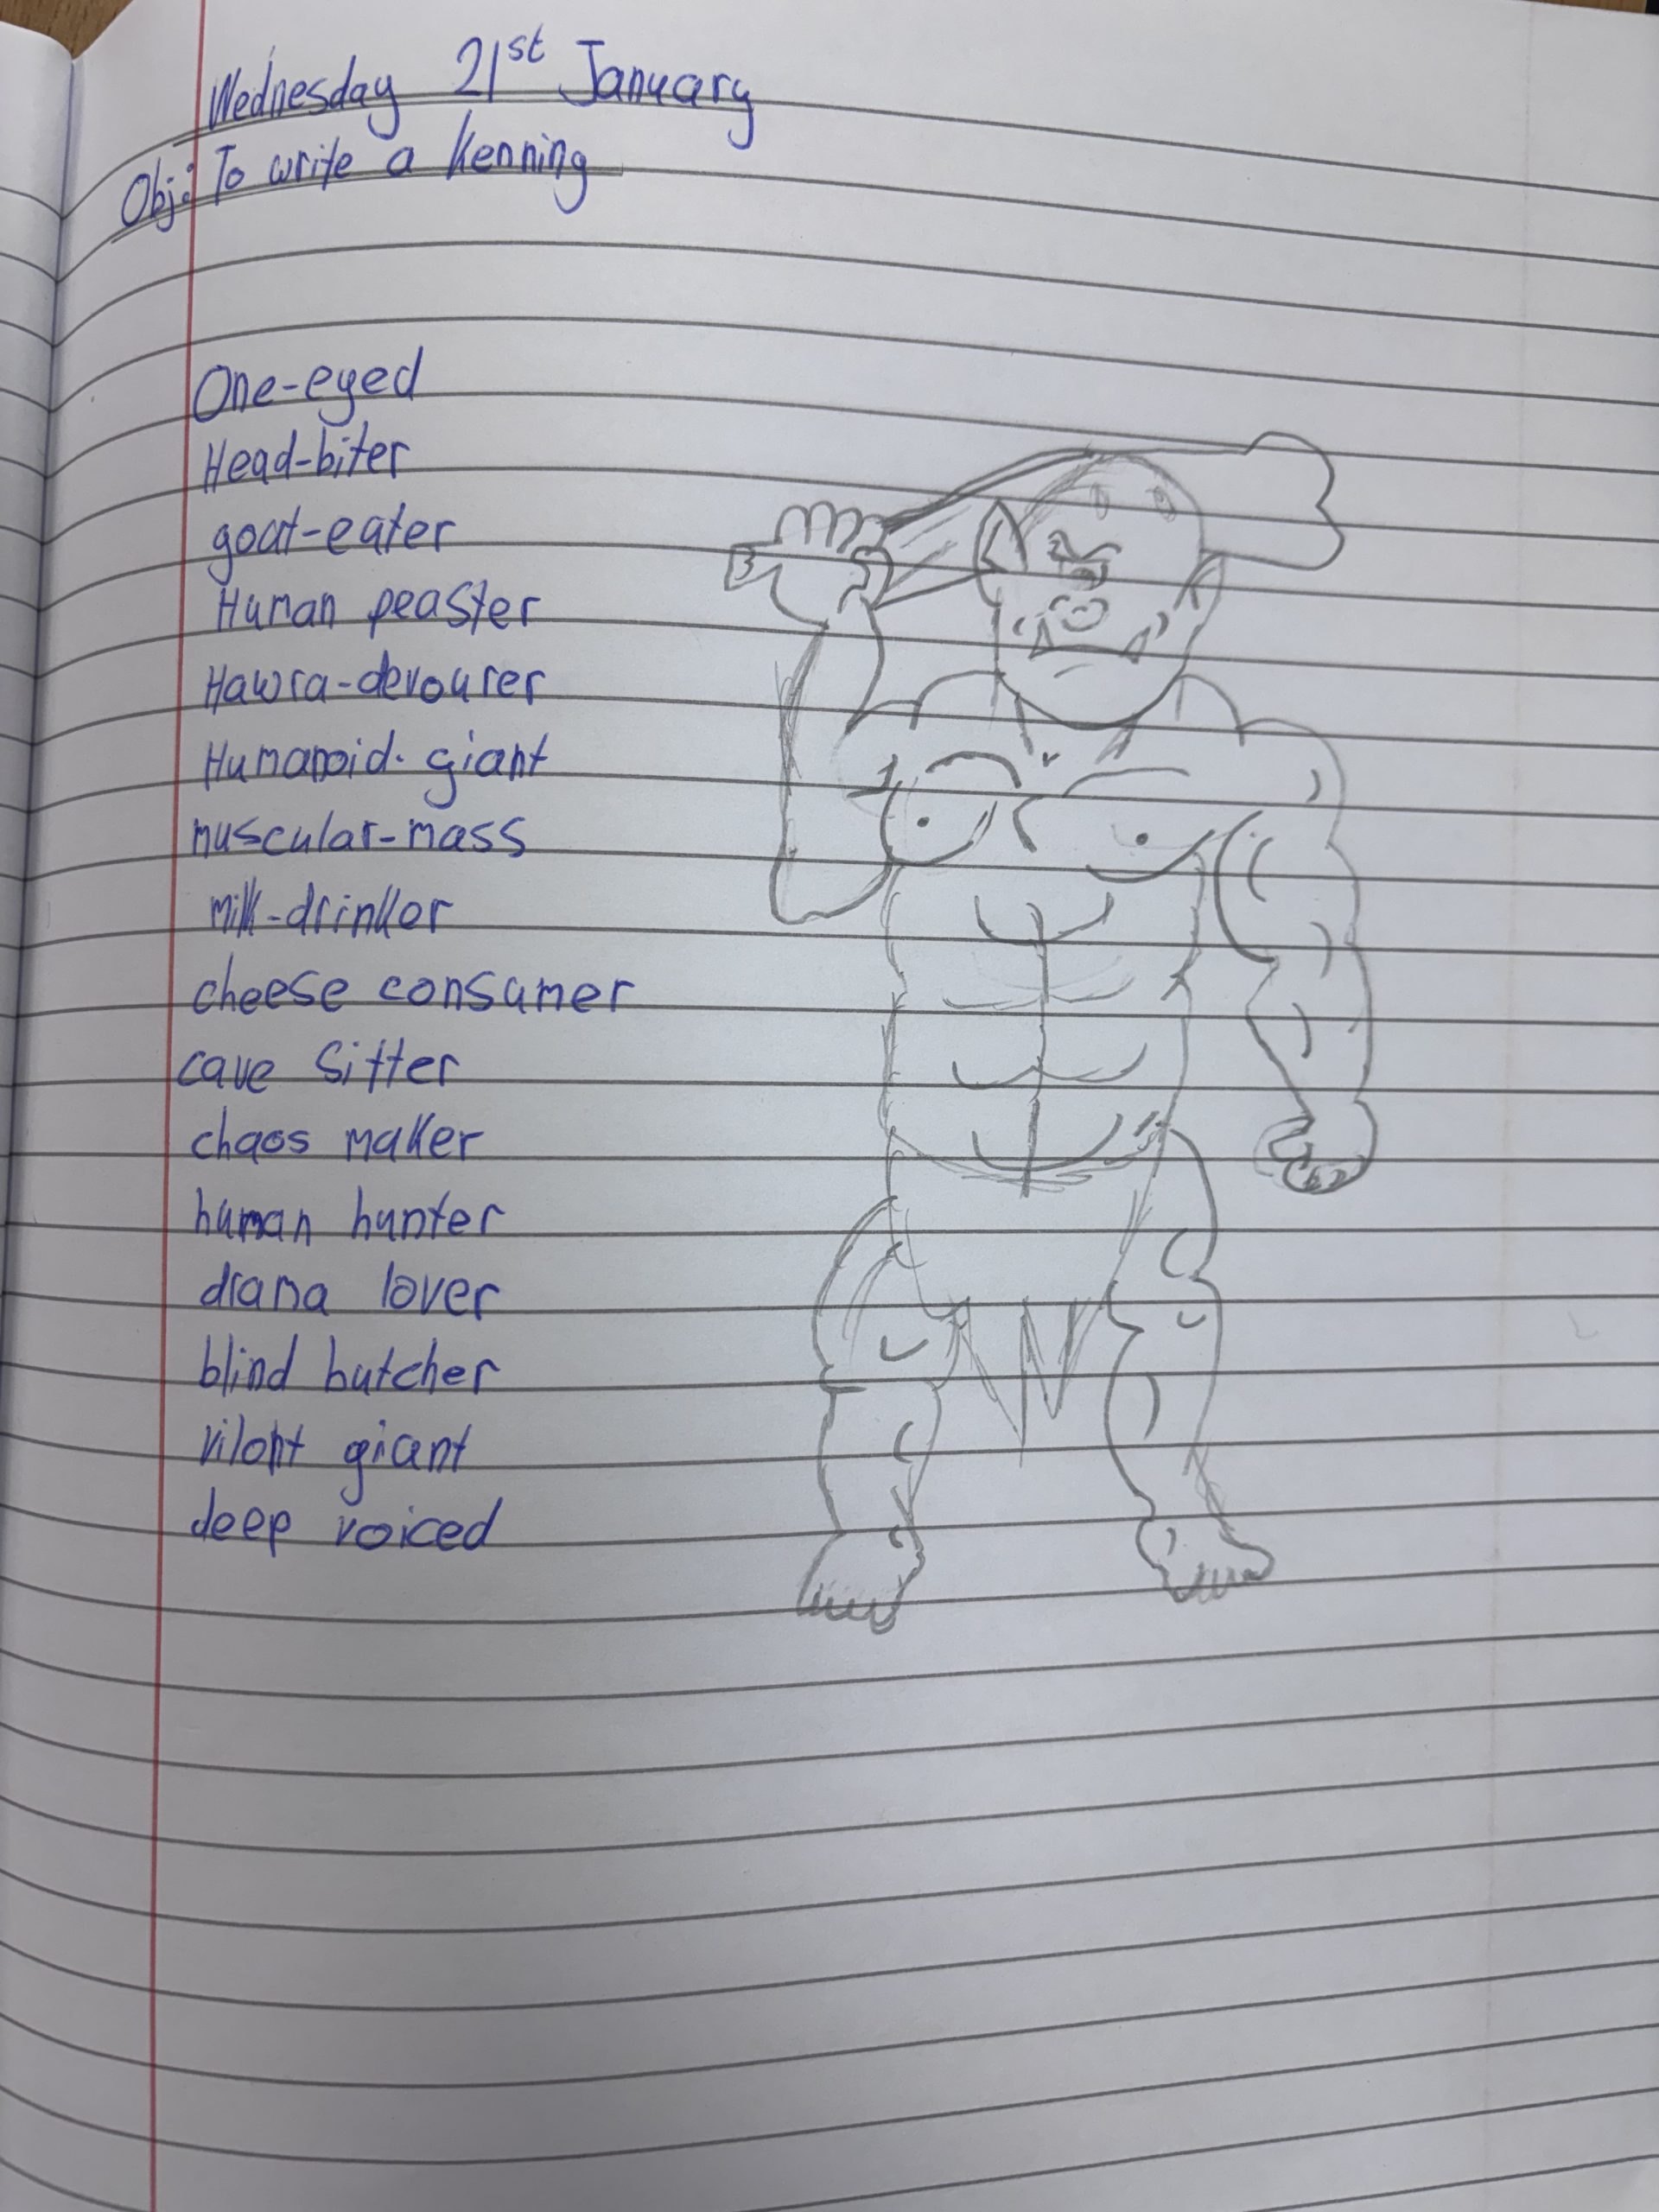 Wednesday 21st January
Obj: To write a Kenning
One-eyed
Head-biter
goat-eater
Human peaster
Hawra-devourer
Humanoid. giant
muscular-mass
milk-drinker
cheese consumer
cave sitter
chaos maker
human hunter
drama lover
blind butcher
vilont giant
deep voiced